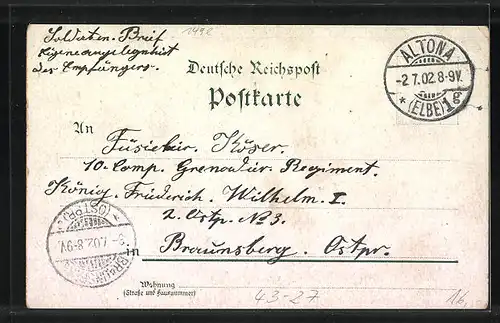 Soldaten-Brief
Eigene Angelegenheit
des Empfängers.
ALTONA
-2.7.02.8-9V.
* (ELBE) 1g
Deutsche Reichspost
Postkarte
An Füsilier Köser.
10. Comp. Grenadier Regiment
König Friedrich Wilhelm I.
2. Ostpr. No 3.
in Braunsberg. Ostpr.
BRAUNSBERG
(OSTPR.)
-3.7.02.8-9V.
Wohnung
(Straße und Hausnummer)
43-27
16,